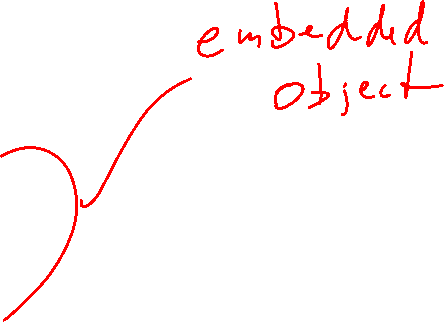 embedded
object